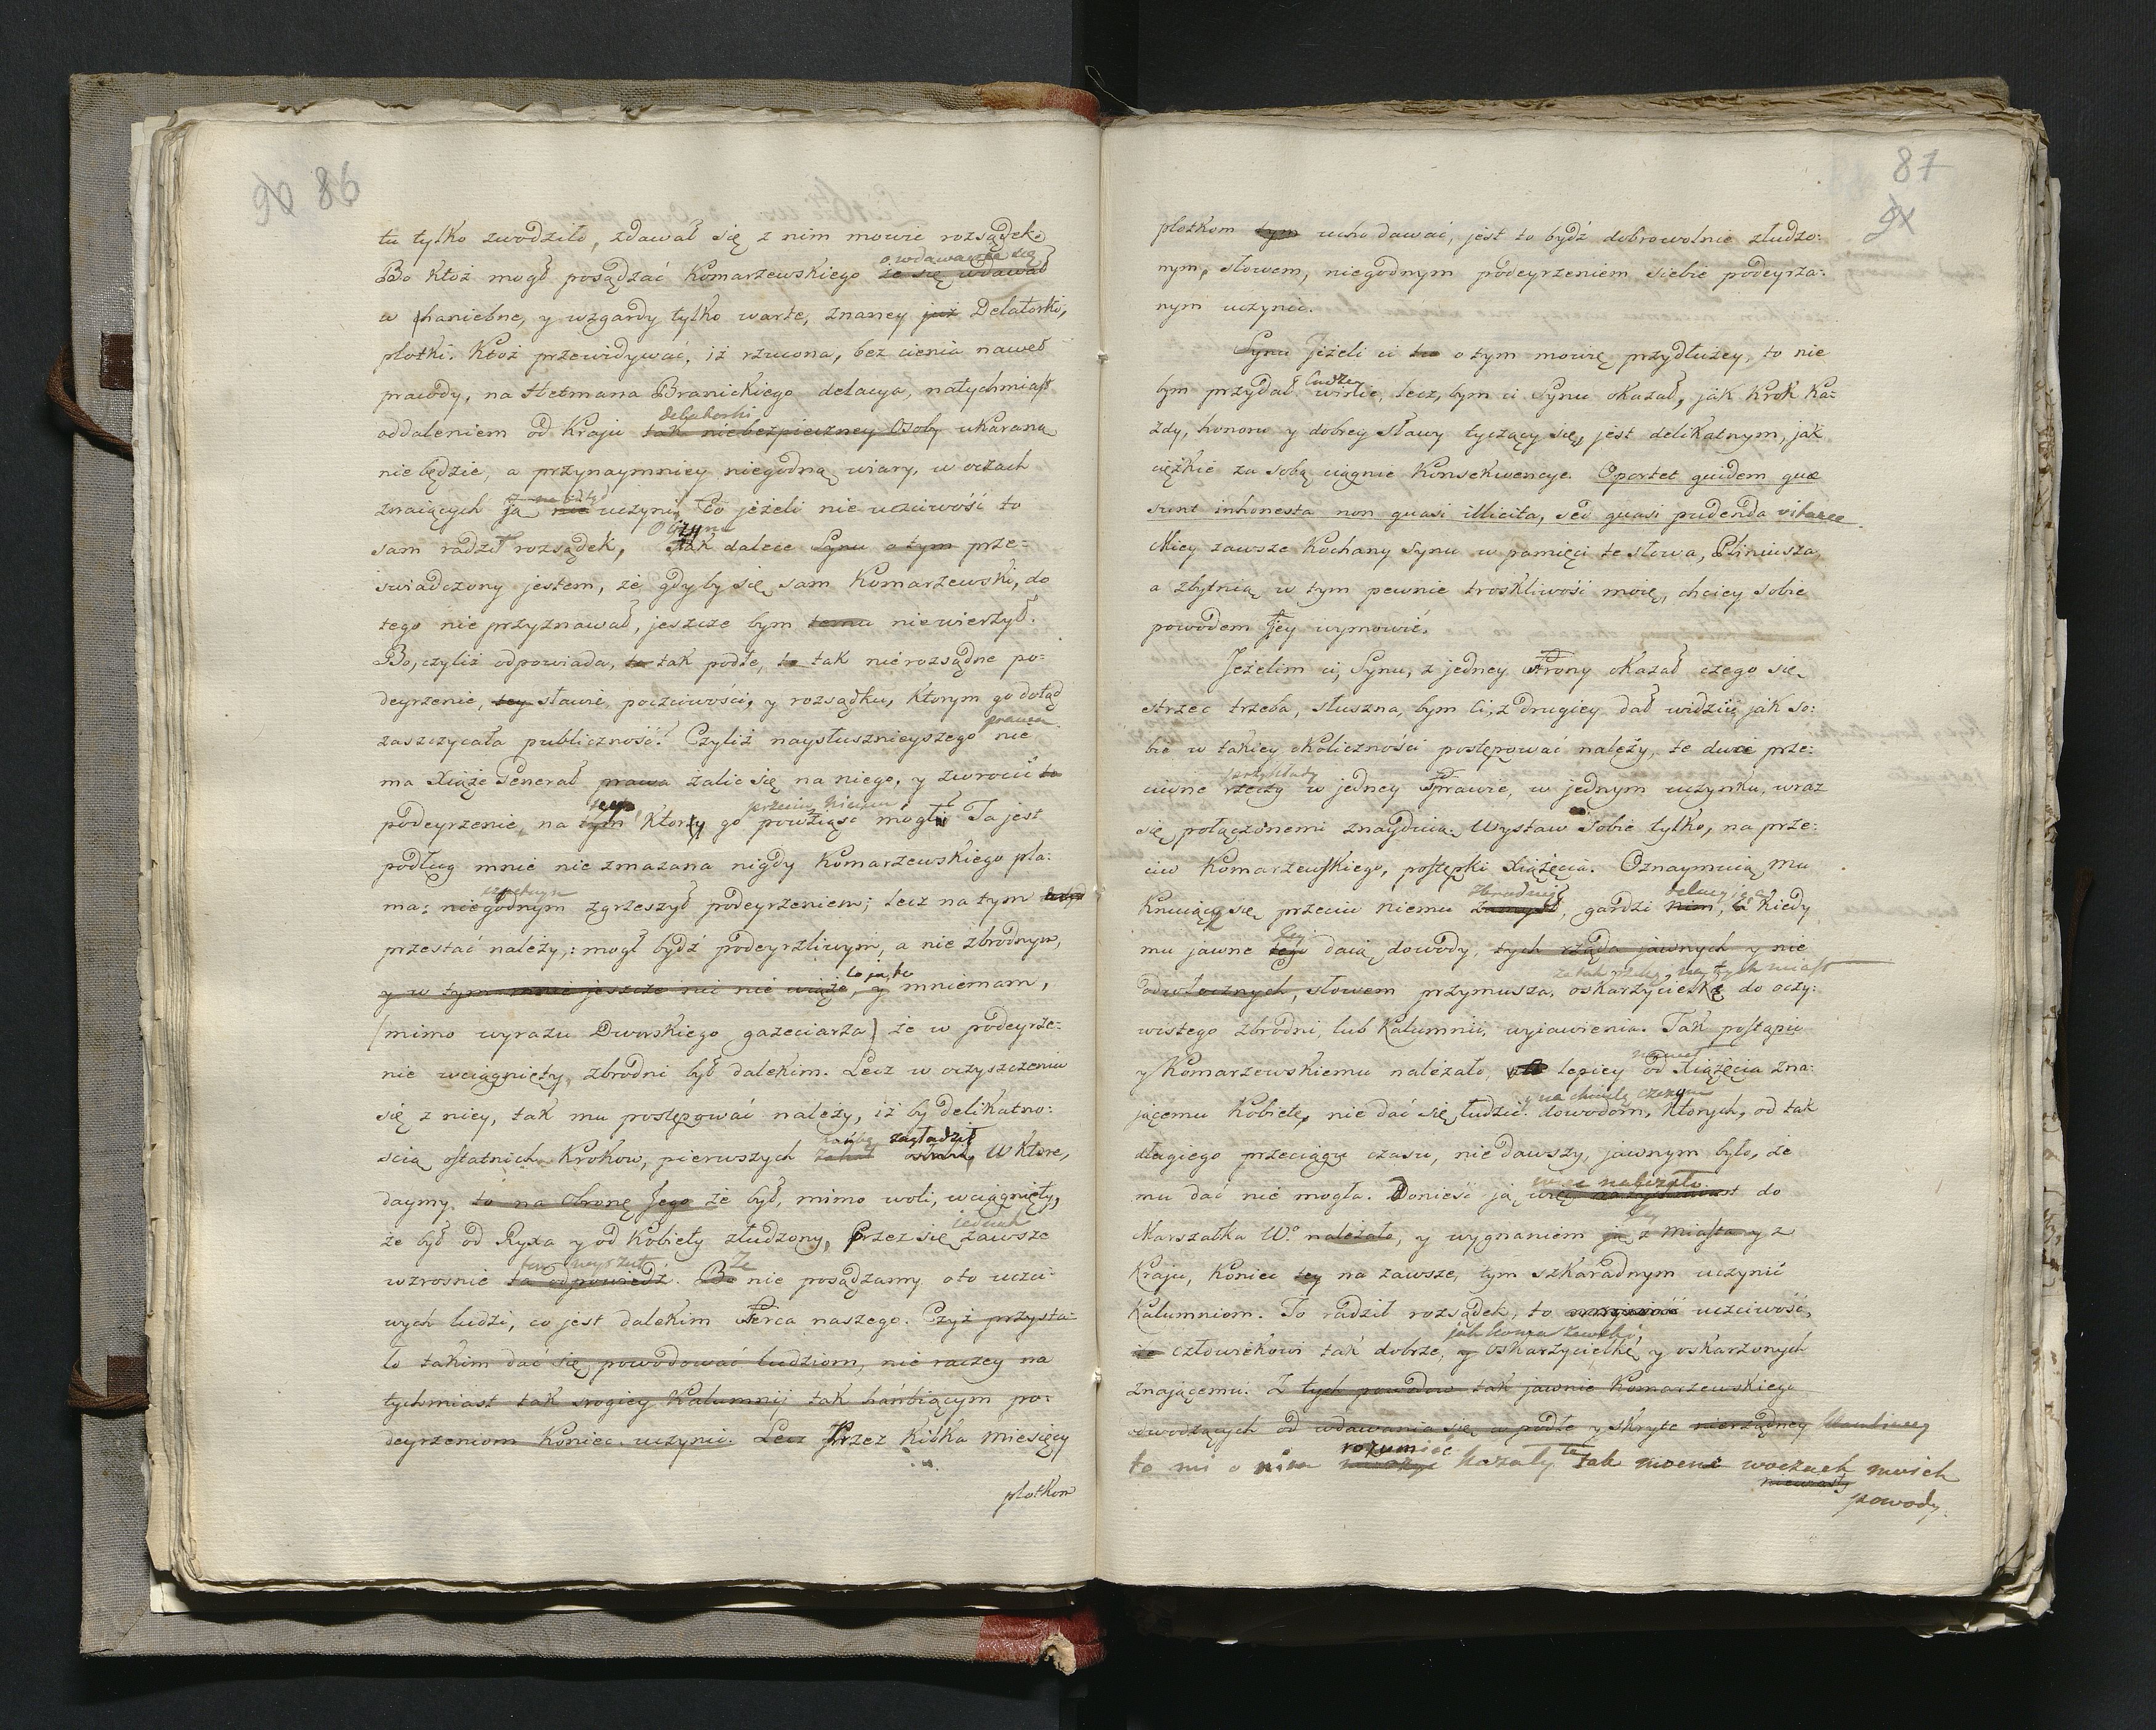 90 86
tu tylko zwodziło, zdawał się z nim mowić rozsądek.
o wdawanie się
Bo ktoż mogł posądzać Komarzewskiego że się wdawał
w haniebne, y wzgardy tylko warte, znaney już Delatorki,
plotki. Ktoż przewidywać, iż rzucona, bez cienia nawet
prawdy, na Hetmana Branickiego delacya, natychmiast
delatorki
oddaleniem od Kraju tak niebezpieczney Osoby ukaraną
nie będzie, a przynaymniey niegodną wiary, w oczach
znaiących ją nie uczyni. Co jeżeli nie uczciwość to
O czym
sam radził rozsądek, tak dalece Synu o tym prze-
świadczony jestem, że gdyby się sam Komarzewski, do
tego nie przyznawał, jeszcze bym temu nie wierzył.
Bo, czyliż odpowiada, to tak podłe, to tak nie rozsądne po-
deyrzenie, tey sławie, poczciwości, y rozsądku, ktorym go dotąd
prawa
zaszczycała publiczność? Czyliż nayslusznieyszego nie
ma Xiąże Generał prawa żalić się na niego, y zwrocić to
tego przeciw niemu
podeyrzenie, na tym ktory go powziąść mogł? Ta jest
podług mnie nie zmazana nigdy Komarzewskiego pla-
ma: niegodnym zgrzeszył podeyrzeniem; lecz na tym
przestać należy,: mogł bydź podeyrzliwym, a nie zbrodnym,
co ja, to
y w tym mnie jeszcze nic nie wiąże, y mniemam,
(mimo wyrazu Dworskiego gazeciarza) że w podeyrze-
nie wciągnięty, zbrodni był dalekim. Lecz w oczyszczeniu
się z niey, tak mu postępować należy, iż by delikatno-
zagładził
ścią ostatnich Krokow, pierwszych W które,
daymy to na obronę Jego że był, mimo woli, wciągnięty,
jednak
że był od Ryxa y od Kobiety złudzony, Przez się zawsze
Że
wzrośnie ta odpowiedź. Bo nie posądzamy o to uczci-
wych ludzi, co jest dalekim Serca naszego. Czyż przysta-
ło takim dać się powodować ludziom, nie raczey na
tychmiast tak srogiey Kalumnij tak hańbiącym po-
deyrzeniom Koniec uczynić. Lecz Przez Kilka Miesięcy
plotkom
87
91
plotkom tym ucho dawać, jest to bydź dobrowolnie złudzo-
nym, słowem, niegodnym podeyrzeniem siebie podeyrza-
nym uczynić.
Synu Jeżeli ci tu o tym mowię przydłużey, to nie
bym przydał winie, lecz, bym ci Synu okazał, jak Krok Ka-
żdy, honoru y dobrey Sławy tyczący się, jest delikatnym, jak
ciężkie za sobą ciągnie Konsekwencye. Oportet quidem quæ
sunt inhonesta non quasi illicita, sed quasi pudenda vitare.
Miey zawsze Kochany Synu w pamięci te słowa, Pliniusza,
a zbytnią w tym pewnie troskliwość moię, chciey sobie
powodem Jey wymowić.
Jeżelim ci, Synu, z jedney Strony okazał czego się
strzec trzeba, słuszna, bym ci, z drugiey dał widzieć jak so-
bie w takiey okoliczności postępować należy, te dwie prze-
przykłady
ciwne rzeczy w jedney Sprawie, w jednym uczynku, wraz
się połączonemi znayduią. Wystaw Sobie tylko, na prze-
ciw Komarzewskiego, postępki Xiążęcia. Oznaymuią mu
zbrodnię delacyją
Knuiącą się przeciw niemu zamysł, gardzi nim, a kiedy
jey
mu jawne tego daią dowody, tych rząda jawnych y nie
natychmiast
odwłocznych, słowem przymusza oskarzycielkę do oczy-
wistego zbrodni, lub Kalumnii, wyiawienia. Tak postąpić
nawet
y Komarzewskiemu należało, lepiey od Xiążęcia zna-
na chwilę czasu
jącemu Kobietę, nie dać się łudzić dowodom, ktorych, od tak
długiego przeciągu czasu, nie dawszy, jawnym było, że
więc należało
mu dać nie mogła. Donieść ją więc natychmiast do
Marszałka W.º należało, y wygnaniem ją z Miasta y z
Kraju, Koniec tey na zawsze, tym szkaradnym uczynić
Kalumniom. To radził rozsądek, to uczciwość,
jak Komarzewski,
że człowiekowi tak dobrze, y oskarzycielkę y oskarzonych
znającemu. Z tych powodow tak jawnie Komarzewskiego
odwodzących od wdawania się w podłe y skryte nierządney
rozumieć
to mi o nim kazały te tak mocne w oczach moich
niewiasty
powody.